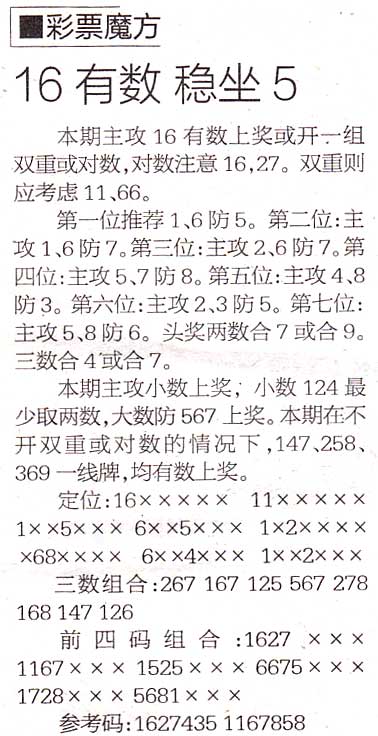 ■彩票魔方
16有数 稳坐5
本期主攻16有数上奖或开一组
双重或对数,对数注意16,27。双重则
应考虑11、66。
第一位推荐1、6防5。第二位:主
攻1、6防7。第三位:主攻2、6防7。第
四位:主攻5、7防8。第五位:主攻4、8
防3。第六位:主攻2、3防5。第七位:
主攻5、8防6。头奖两数合7或合9。
三数合4或合7。
本期主攻小数上奖,小数124最
少取两数,大数防567上奖。本期在不
开双重或对数的情况下,147、258、
369一线牌,均有数上奖。
定位:16××××× 11×××××
1××5××× 6××5××× 1×2××××
×68×××× 6××4××× 1××2×××
三数组合:267 167 125 567 278
168 147 126
前四码组合:1627×××
1167××× 1525××× 6675×××
1728××× 5681×××
参考码:1627435 1167858